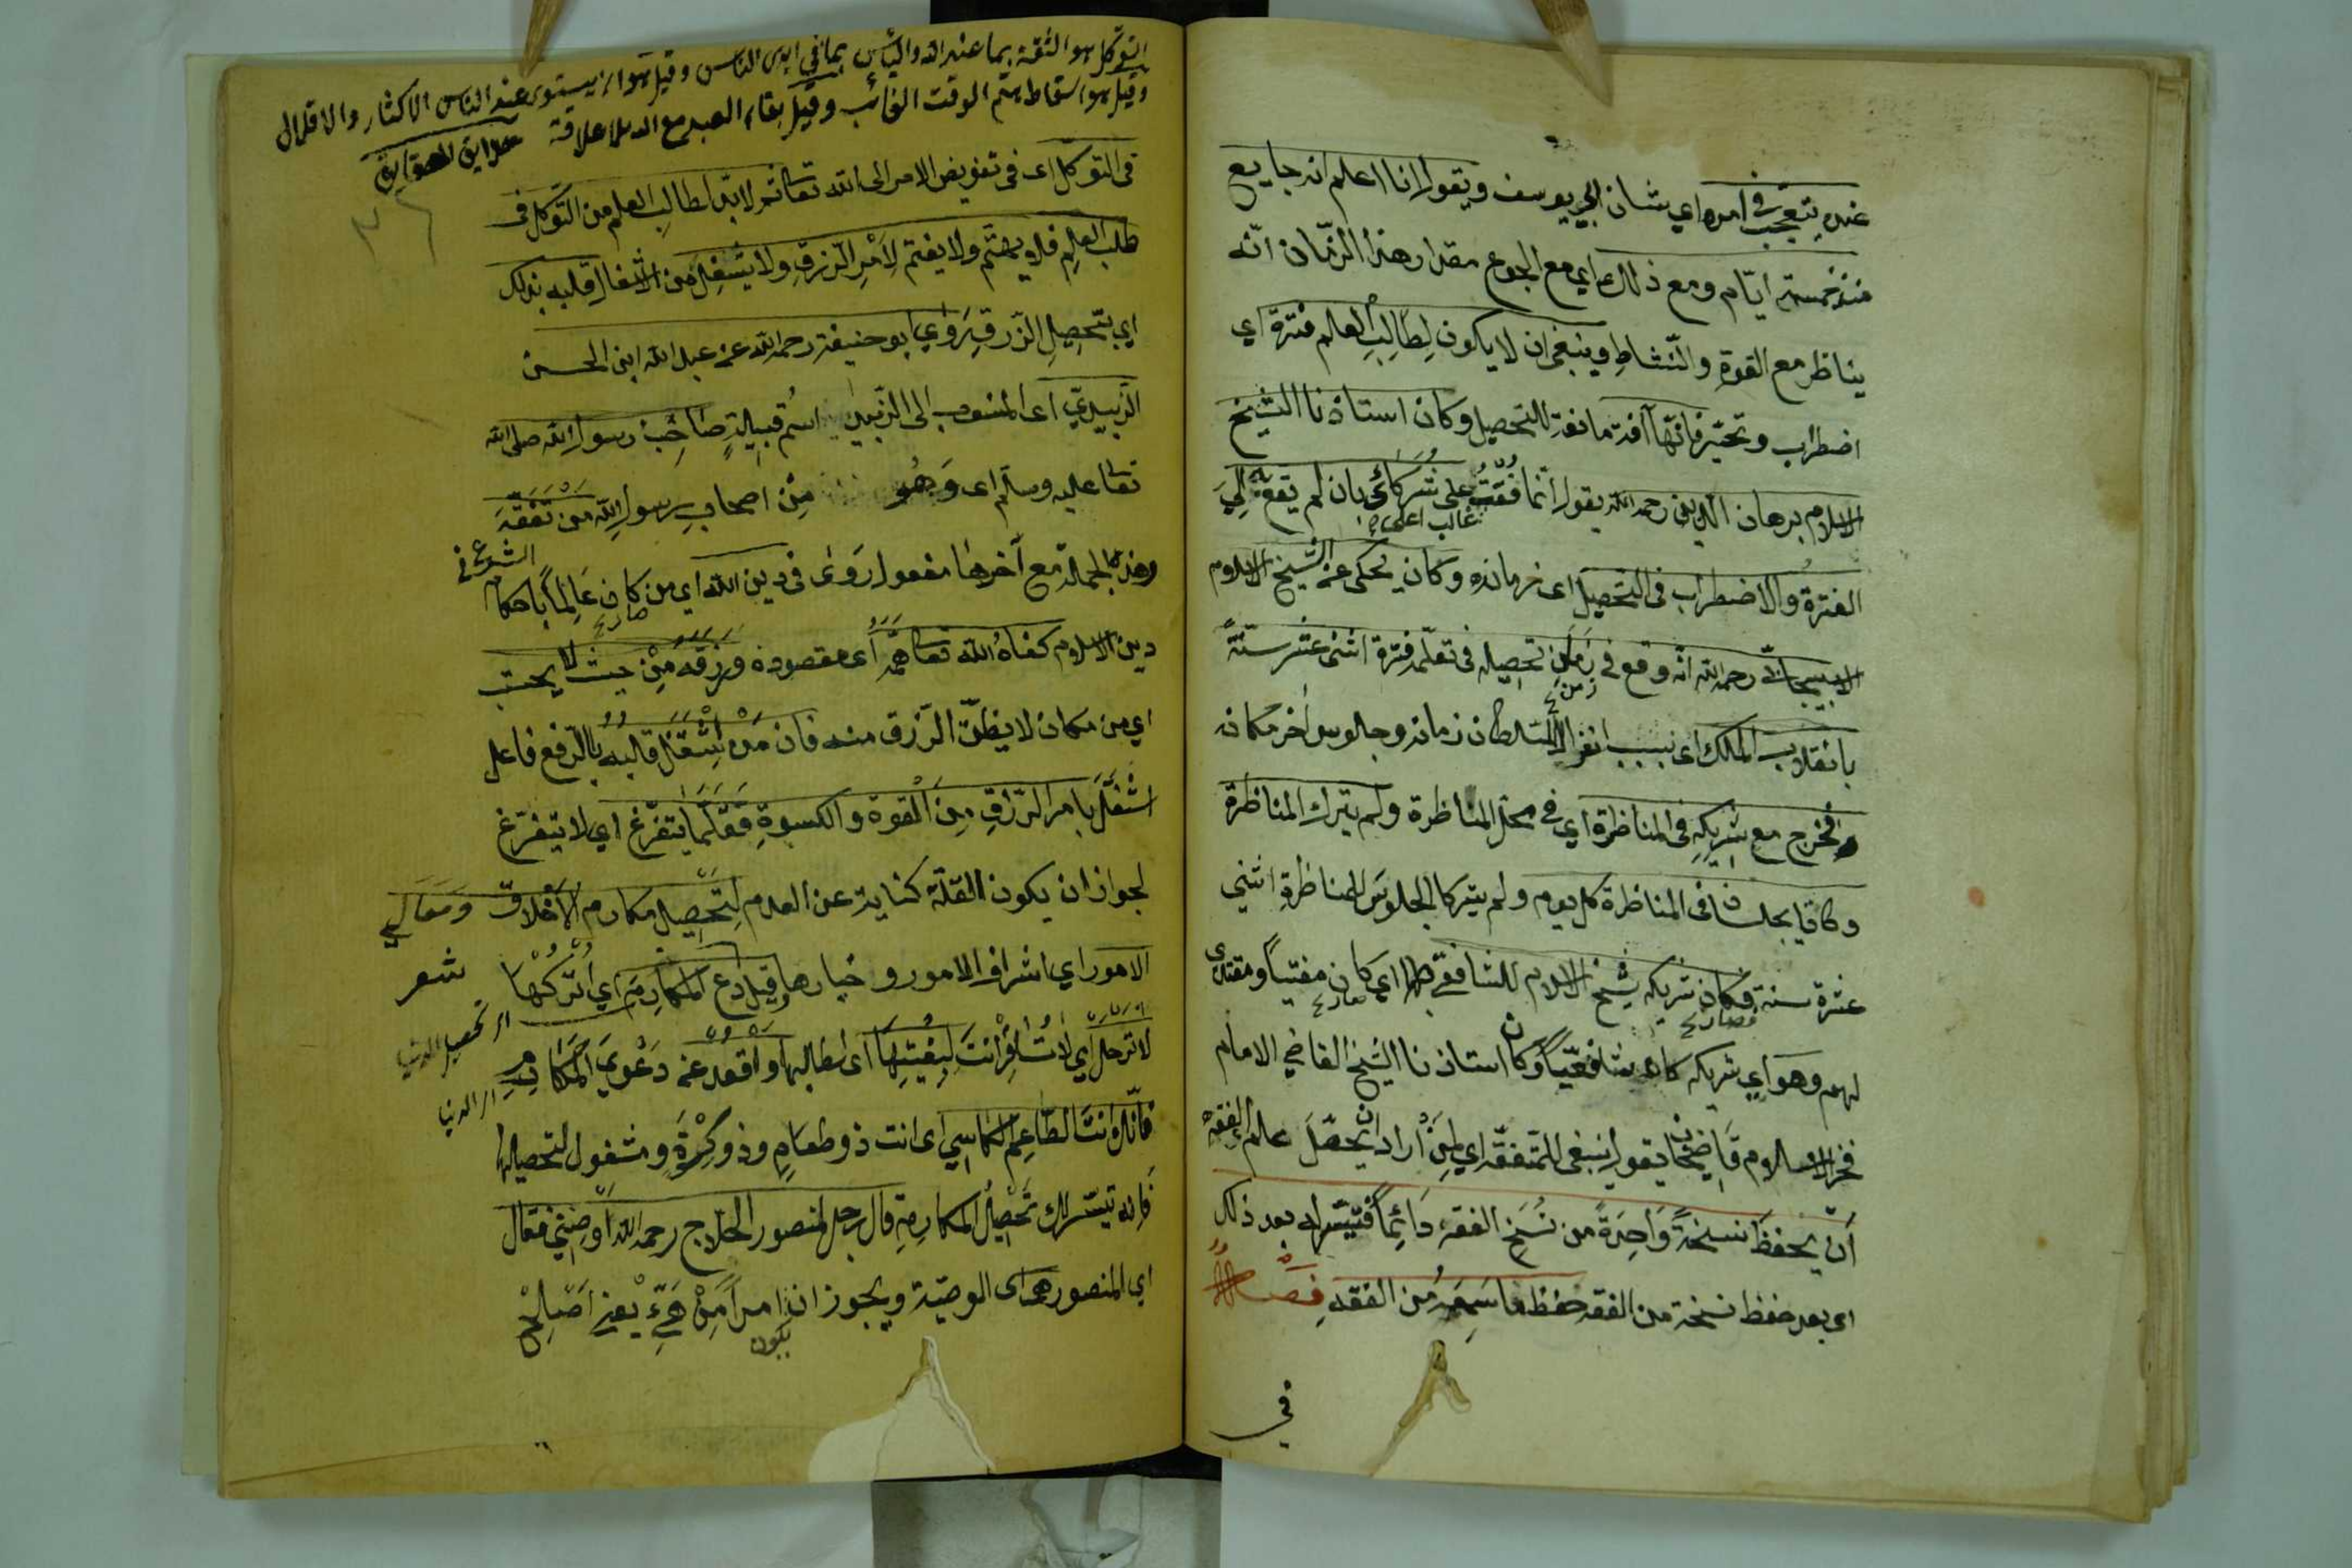 عنده يتعجب في امره اي بشان ابي يوسف ويقول انا اعلم انه جايع
منذ خمسة ايّام ومع ذلك اي مع الجوع مقدار هذا الزمان انّه
يناظر مع القوة والنّشاط وينبغي ان لا يكون لِطالِبِ العلم فترة اي
اضطراب وتحيّر فانّها آفة مانعة للتحصيل وكان استاذنا الشيخ
الاسلام برهان الدين رحمه الله يقول انّما فُقْتُ على شُرَكائي بان لم يقع لِيَ
غالب اعلى
الفترة والاضطراب في التحصيل اى زمانه وكان يحكى عن الشّيخ الاسلام
الاسبيجابيّ رحمه الله انّه وقع في زمان تحصيله في تعلّمه فترة اثنى عشر سنةً
زمن
بانقلاب الملك اى بسبب السلطان زمانه وجلوس اخر مكانه
فخرج مع شريكِهِ في المناظرة اي في محل المناظرة ولم يترك المناظرة
وكانا يجلسان في المناظرة كل يوم ولم يتركا الجلوسَ للمناظرةِ اثني
عشرة سنة فكان شريكه شيخ الاسلام للشافعي اي كان مفتياً ومقتدى
فصار صار
لهم وهو اي شريكه كان شافعيّاً وكان استاذنا الشيخ القاضي الامام
فخر الاسلام قاضيخان يقول ينبغي للمتفقّه اي لِمَنْ اراد ان يحصّلَ علم الفقه
اَنْ يحفظ نسخةً وَاحِدَةً من نُسَخِ الفقه دَائِماً فتيسّر له بعد ذلك
اى بعد حفظ نسخة من الفقه حفظ ما سَمِعَهُ من الفقه فصل
في
التوكل هو الثقة بما عند الله واليأس بما في ايدى الناس وقيل هو ان يستوى عند الناس الاكثار والاقلال
وقيل هو اسقاط هم الوقت الغائب وقيل بقاء العبد مع الله بلا علاقة
في التوكل اى في تفويض الامر الى الله تعالى ثم لابدّ لطالب العلم من التّوكّل في
طلب العلم فلا يهتّم ولا يغتم لِاَمْرِ الرّزقِ ولا يشغل من الاشغال قلبه بذلك
اي بتحصيل الرّزقِ روي ابو حنيفة رحمه الله عن عبد الله ابن الحسن
الزّبيديّ اى المنسوب الى الزّبيد اسم قبيلةٍ صاحِبُ رسول الله صلى الله
تعالى عليه وسلّم اى وَهُو مِنْ اصحابِ رسول الله من تَفَقَّهَ
وهذه الجملة مع آخرها مفعول رَوى في دين الله اي من كان عالماً باحكام
الشرع في صار
دين الاسلام كفاه الله تعالى همَّه اى مقصوده ورزقه مِنْ حيث لا يحتسب
اي من مكان لا يظنّ الرّزق منه فان مَنْ اشْتَغَلَ قلبُه بالرّفع فاعل
اشتغل بامر الرّزقِ مِنَ القوة والكسوةِ قَلَّمَا يَتَفَرَّغُ اي لا يتفرّغ
لجواز ان يكون القلّة كناية عن العدم لِتَحْصِيلِ مكارم الاَخْلاق وَمَعَالِي
الامور اي اشراف الامور وخيارها قيل دَعِ المكارِمَ اي اُتْرُكْهَا شعر
لا تَرْحَلْ اي لا تُسَافِرْ انتَ لِبُغْيَتِهَا اى لطالبها واقْعُدْ عن دَعْوي المكَارِمِ
اى لتحصيل الدنيا
اى الدنيا
فانّك اَنتَ الطّاعِمُ الكاسِي اى انت ذو طعامٍ وذو كِسْوَةٍ ومشغول لتحصيلها
فانه تيسّر لك تَحْصِيْلُ المكارمِ قال رجل لمنصور الحلّاج رحمه الله اَوْصِنِي فقال
اي المنصور هى الوصيّة ويجوز ان امراً مِنْ هَيَّءْ يعني اَصْلِحْ
يكون